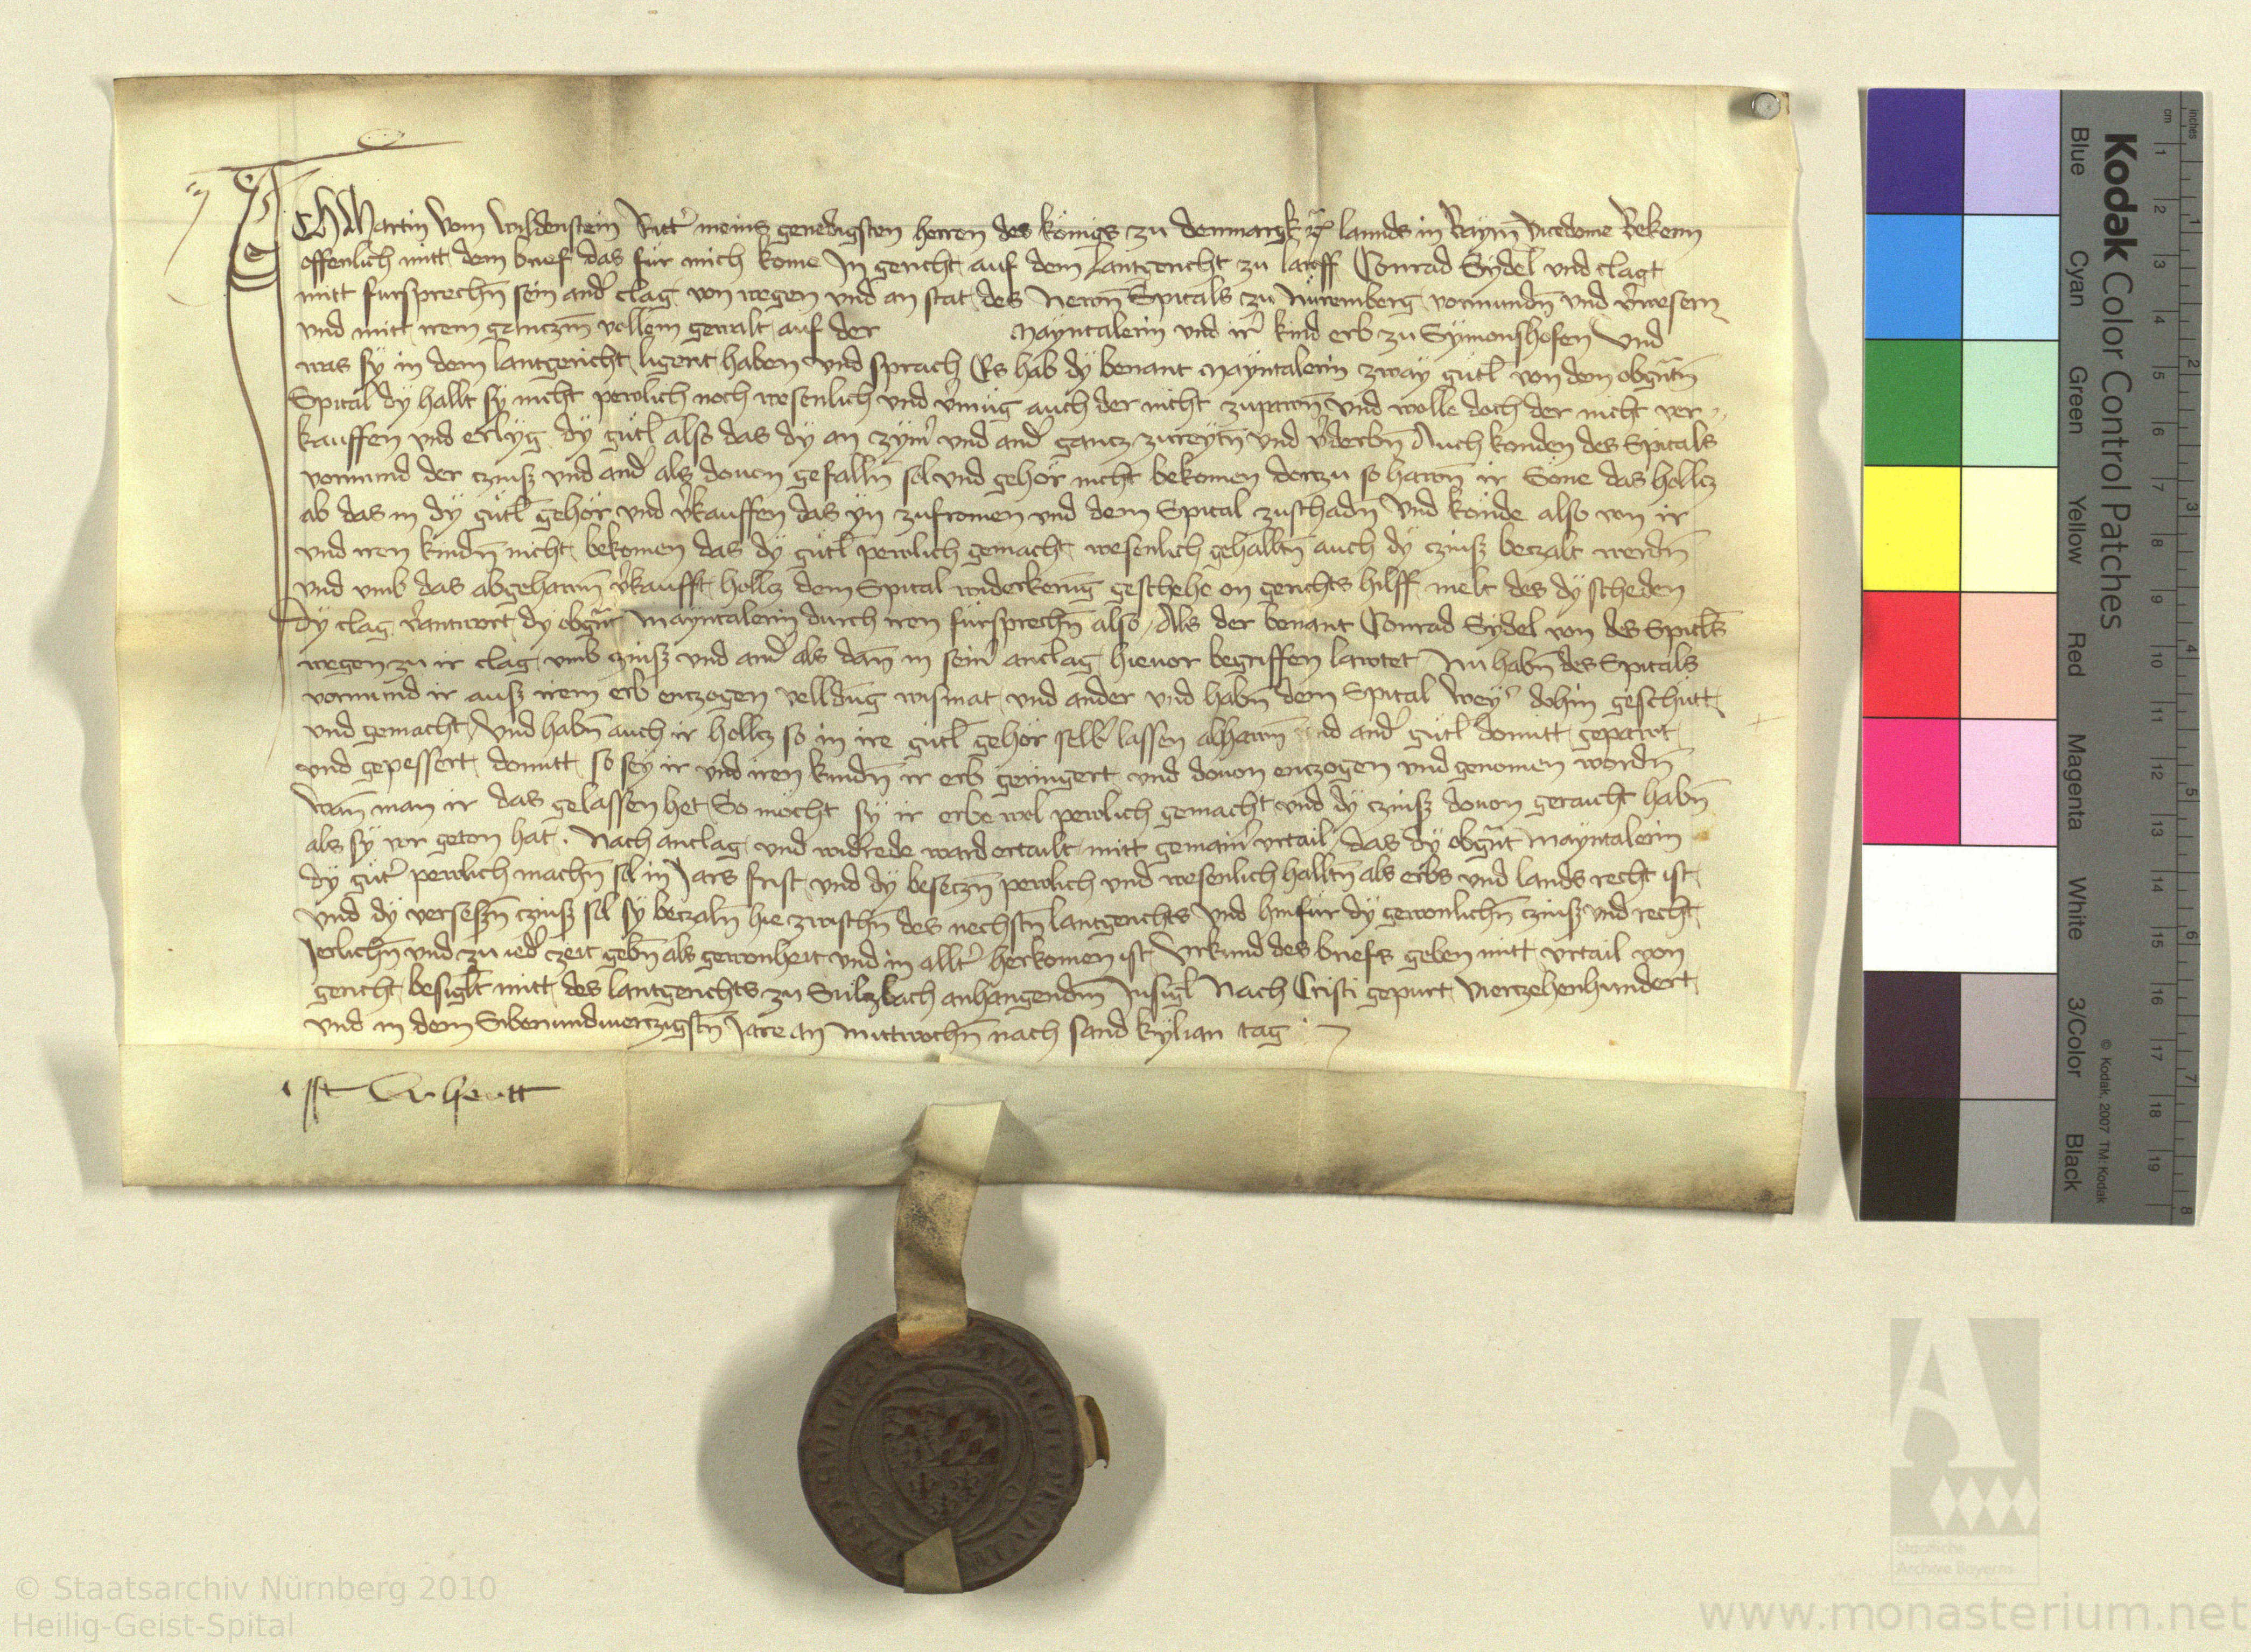 ICh Martin vom Wildenstein Ritt' meins genedigsten herren des königs zu denmargk rc lannds in Bayrn̄ Vicedome Bekenn
offenlich mitt dem brief das für mich kome In gericht auf dem Lantgericht zu lawff Conrad Sydel vnd clagt
mitt fursprechn̄ sein and' clag von wegen vnd an stat des Newn̄ Spitals zu Nüremberg vormundn̄ vnd v'wesern
vnd mitt irem ganczm̄ vollem gewalt auf der Mayntalerin vnd ir' kind erb zu Symonshofen Vnd
was sy in dem lantgericht ligent haben vnd sprach Es hab dy benant Mayntalerin zway gütl von dem obgn̄tn̄
Spital dy hallt sy nicht pewlich noch wesenlich vnd v'müg auch der nicht zupawn̄ vnd wolle doch der nicht ver
kauffen vnd erlyg dy gütl also das dy an zym' vnd and' gancz zureytn̄ vnd v'derbn̄ Auch konden des Spitals
vormund der czinsz vnd and' als douon gefalln̄ sol vnd gehör nicht bekomen dorzu so hawn̄ ir Söne das holtz
ab das in dy gütl gehör vnd v'kauffen das yn zufromen vnd dem Spital zuschadn̄ Vnd könde also von ir
vnd iren kindn̄ nicht bekomen das dy gütl pewlich gemacht wesenlich gehalltn̄ auch dy czinsz beczalt werdn̄
vnd vmb das abgehawn̄ v'kaufft holtz dem Spital widerkerūg geschehe on gerichts hilff melt des dy scheden
Dy clag v'antwort dy obgn̄t Mayntalerin durch iren fürsprechn̄ also Als der benant Conrad Sydel von des Spitls
wegen zu ir clag vmb czinsz vnd and' als dan̄ in sein' anclag hieuor begriffen lawtet Nu habn̄ des Spitals
vormund ir ausz irem erb enczogen velldūg wismat vnd ander vnd habn̄ dem Spital wey' dohin geschütt
vnd gemacht Vnd habn̄ auch ir holtz so in ire gütl gehör selb' lassen abhawn̄ vnd and' gütl domitt gepawt
vnd gepessert domitt so sey ir vnd iren kindn̄ ir erb geringert vnd douon enczogen vnd genomen wordn̄
Wan̄ man ir das gelassen het So möcht sy ir erbe wol pewlich gemacht vnd dy czinsz douon geraicht habn̄
als sy vor geton hat. Nach anclag vnd widrede ward ertailt mitt gemain' vrtail das dy obgn̄t Mayntalerin
dy güt' pewlich machn̄ sol in Jars frist vnd dy beseczn̄ pewlich vnd wesenlich halltn̄ als erbs vnd lands recht ist
vnd dy verseszn̄ czinsz sol sy beczaln̄ hie zwischn̄ des nechstn̄ lantgerichts Vnd hinfür dy gewonlichn̄ czinsz vnd recht
Jerlichn̄ vnd zu ied' czeit gebn̄ als gewonheit vnd in allt' herkomen ist Vrkund des briefs geben mitt vrtail von
gericht besiglt mitt des lantgerichts zu Sulzbach anhangendm̄ Insigl Nach Cristi gepurt Vierczehenhundert
vnd in dem Sibenundvierczigstn̄ Jare an Mittwochn̄ nach sand kylian tag
Kodak Color Control Patches
Blue Cyan Green Yellow Red Magenta White 3/Color Black
© Kodak, 2007 TM: Kodak
inches 1 2 3 4 5 6 7 8
cm 1 2 3 4 5 6 7 8 9 10 11 12 13 14 15 16 17 18 19
Staatliche
Archive Bayerns
© Staatsarchiv Nürnberg 2010
Heilig-Geist-Spital
www.monasterium.net